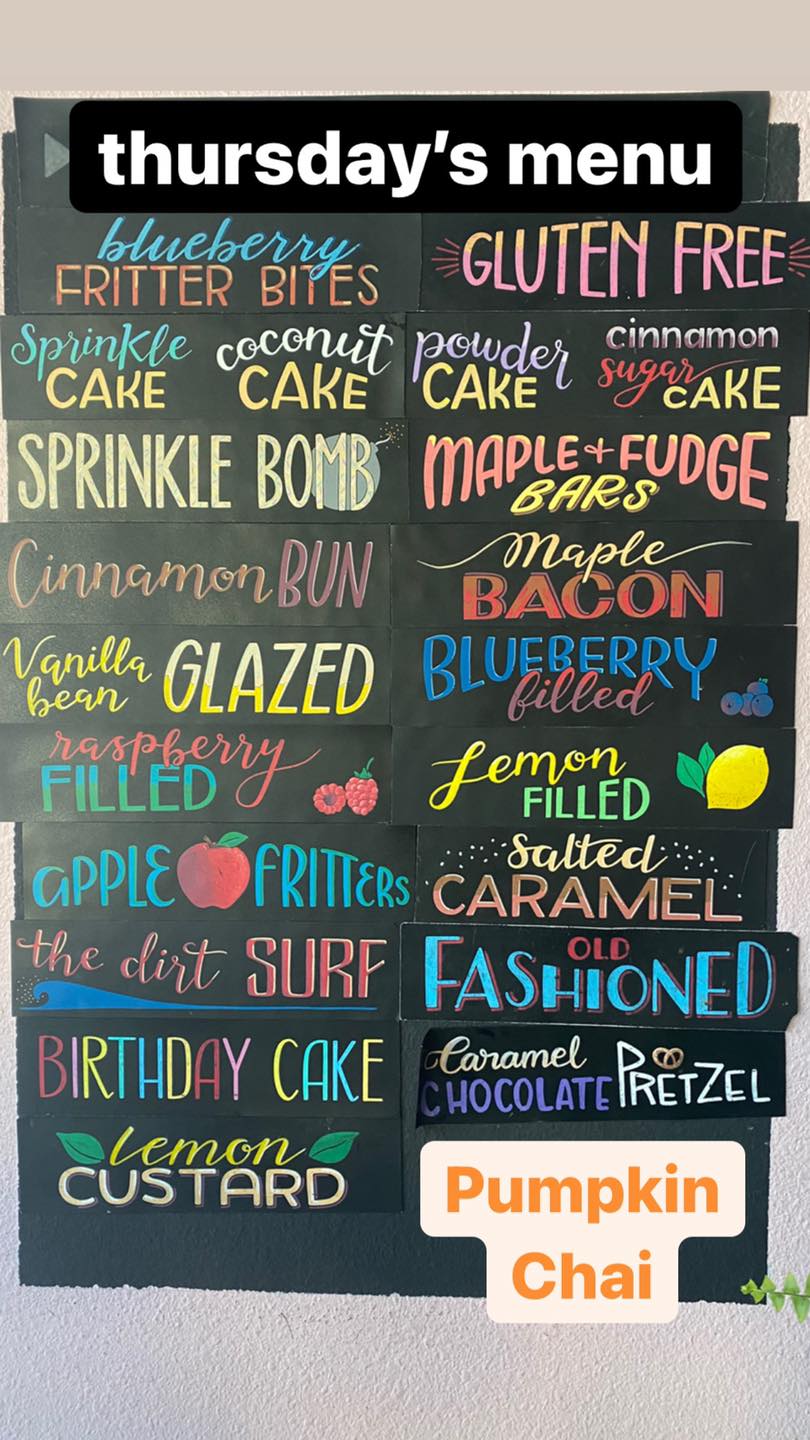 thursday's menu
blueberry
FRITTER BITES
GLUTEN FREE
Sprinkle
CAKE
coconut
CAKE
powder
CAKE
cinnamon
sugar CAKE
SPRINKLE BOMB
MAPLE + FUDGE
BARS
Cinnamon BUN
Maple
BACON
Vanilla
bean GLAZED
BLUEBERRY
filled
raspberry
FILLED
Lemon
FILLED
APPLE FRITTERS
Salted
CARAMEL
the dirt SURF
OLD
FASHIONED
BIRTHDAY CAKE
Caramel
CHOCOLATE PRETZEL
lemon
CUSTARD
Pumpkin
Chai